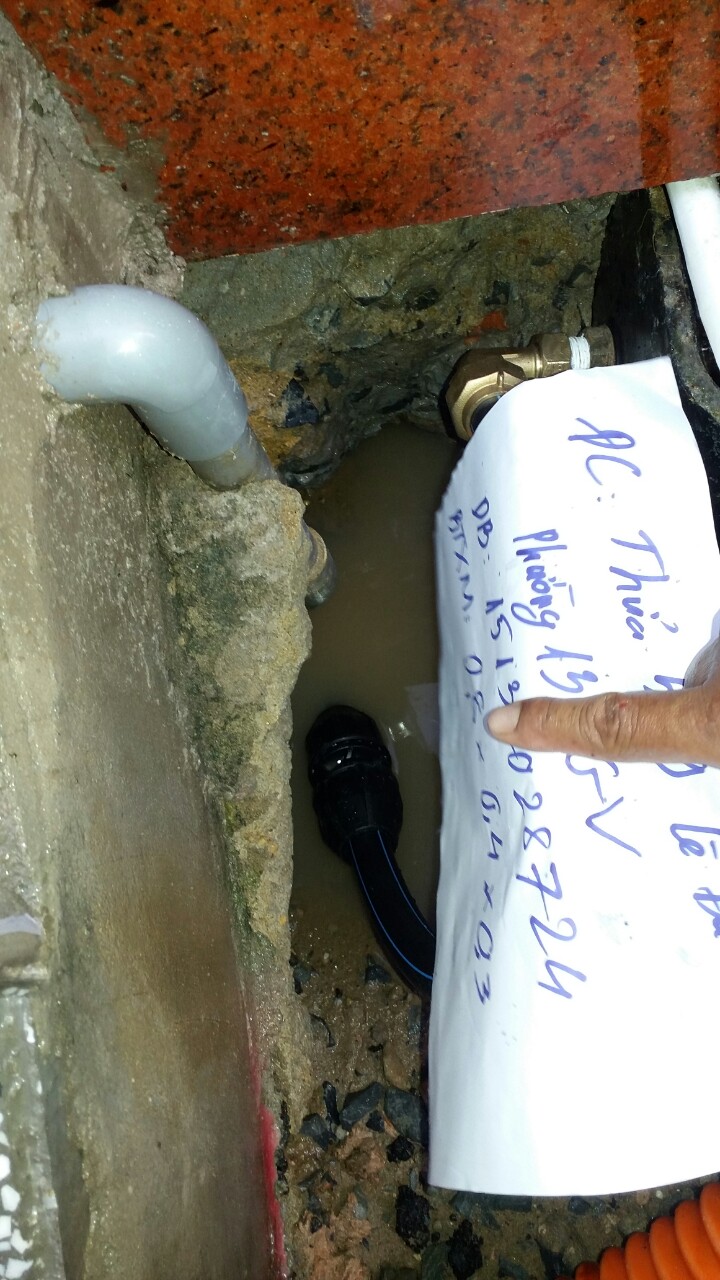 ĐC: Thửa Lê
Phường 13 GV
DB: 1513 028724
BTXM: 0.8 x 0.4 x 0.3